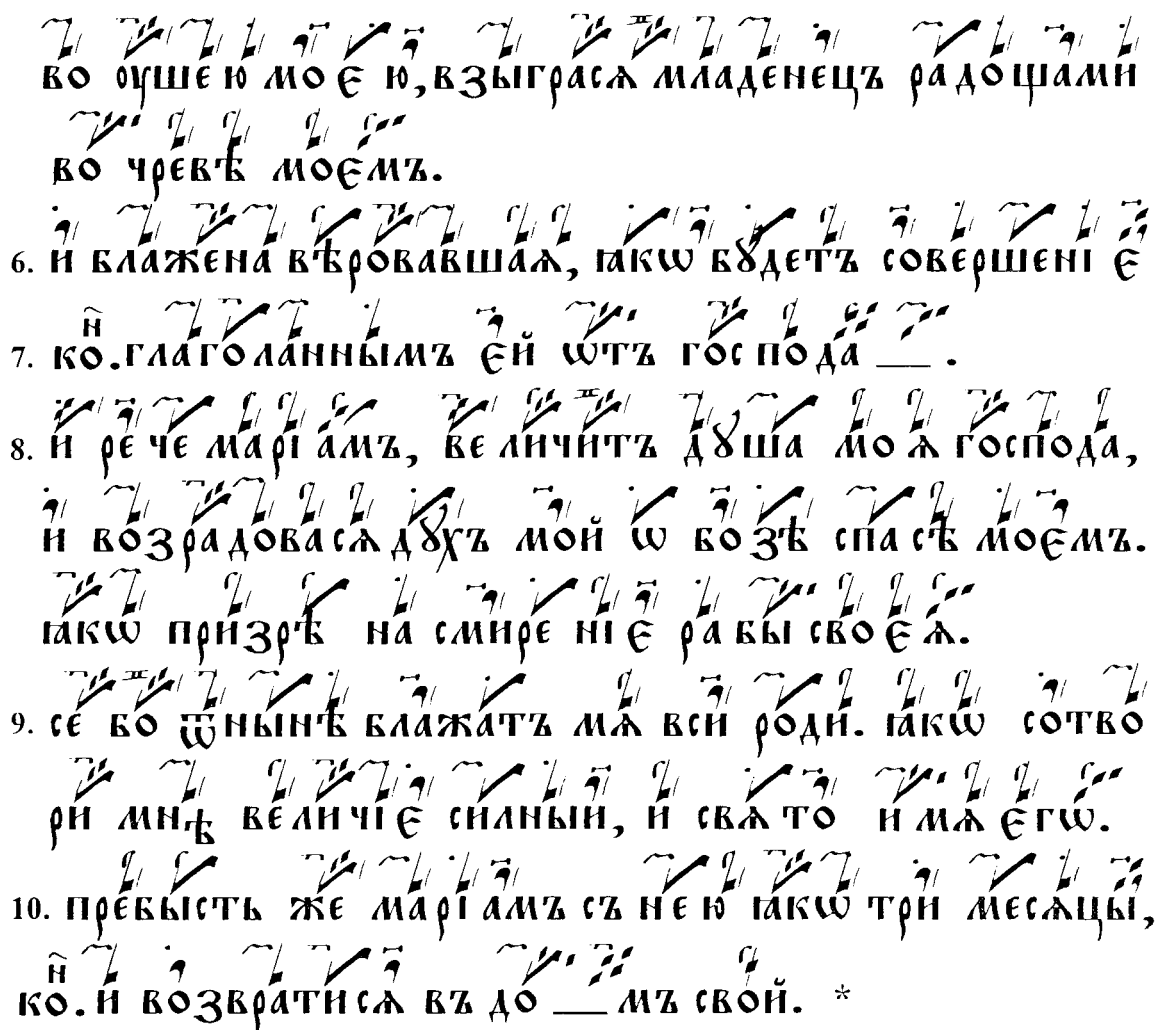 во оушею моє ю, взыграсѧ младенецъ радощами
во чревѣ моємъ.
6. и блажена вѣровавшаѧ, ꙗкѡ бꙋдетъ совершені є
7. ко҃н. глаголаннымъ єй ѿтъ господа __ .
8. и рече марі амъ, величитъ дꙋша моѧ господа,
и возрадовасѧ дꙋхъ мой ѡ бозѣ спасѣ моємъ.
ꙗкѡ призрѣ на смирені є рабы своєѧ.
9. се бо ѿнынѣ блажатъ мѧ вси роди. ꙗкѡ сотво
ри мнѣ величіє силный, и свѧто имѧ єгѡ.
10. пребысть же марі амъ съ нею ꙗкѡ три месѧцы,
ко҃н. и возвратисѧ въ до __ мъ свой. *